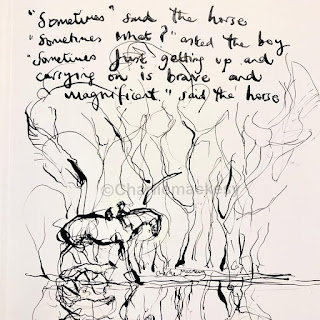 "Sometimes" said the horse
"Sometimes what?" asked the boy
"Sometimes just getting up and
carrying on is brave and
magnificent." said the horse
©Charliemackesy